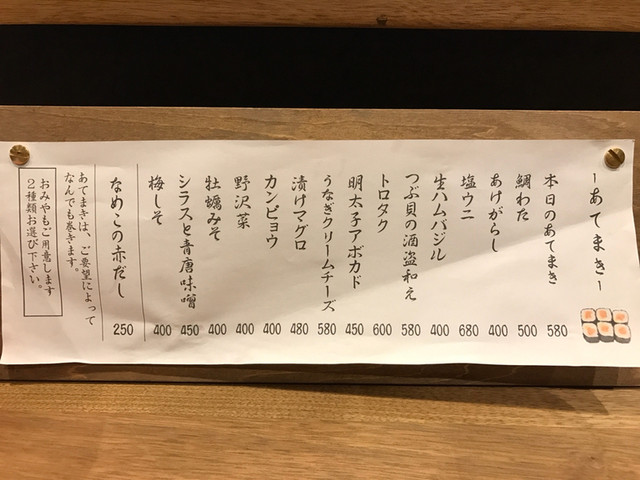 ーあてまきー
本日のあてまき 580
鯛わた 500
あけがらし 400
塩ウニ 680
生ハムバジル 400
つぶ貝の酒盗和え 580
トロタク 600
明太子アボカド 450
うなぎクリームチーズ 580
漬けマグロ 480
カンピョウ 400
野沢菜 400
牡蠣みそ 400
シラスと青唐味噌 450
梅しそ 400
なめこの赤だし 250
あてまきは、ご要望によって
なんでも巻きます。
おみやもご用意します
2種類お選び下さい。